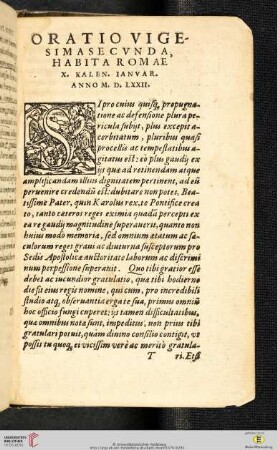 ORATIO VIGE-
SIMASECVNDA,
HABITA ROMAE
X. KALEN. IANVAR.
ANNO M. D. LXXII.
SI pro cuius quisq; propugna-
tione ac defensione plura pe-
ricula subijt, plus excepit a-
cerbitatum, pluribus quasi
procellis ac tempestatibus a-
gitatus est: eò plus gaudij ex
ijs quæ ad retinendam atque
amplificandam illius dignitatem pertinent, ad eũ
peruenire credendũ est: dubitare non potes, Bea-
tissime Pater, quin Karolus rex, te Pontifice crea-
to, tanto cæteros reges eximia quadã percepti ex
ea re gaudij magnitudine superauerit, quanto non
huius modò memoriæ, sed omnium ætatum ac sæ-
culorum reges graui ac diuturna susceptorum pro
Sedis Apostolicæ auctoritate laborum ac discrimi
num perpessione superauit. Quo tibi gratior esse
debet ac iucundior gratulatio, quæ tibi hodierno
die fit eius regis nomine, qui cum, pro incredibili
studio atq; obseruantia erga te sua, primus omniũ
hoc officio fungi cuperet; ijs tamen difficultatibus,
quæ omnibus notæ sunt, impeditus, non prius tibi
gratulari potuit, quàm diuino consilio contigit, vt
possis tu quoq; ei vicissim verè ac meritò gratula-
T ri. Etsi
UNIVERSITÄTS-
BIBLIOTHEK
HEIDELBERG
© Universitätsbibliothek Heidelberg